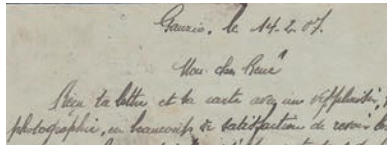 le 14-2-07.
Mon cher René
Reçu ta lettre et ta carte avec un
photographie, eu beaucoup de satisfaction de revoir